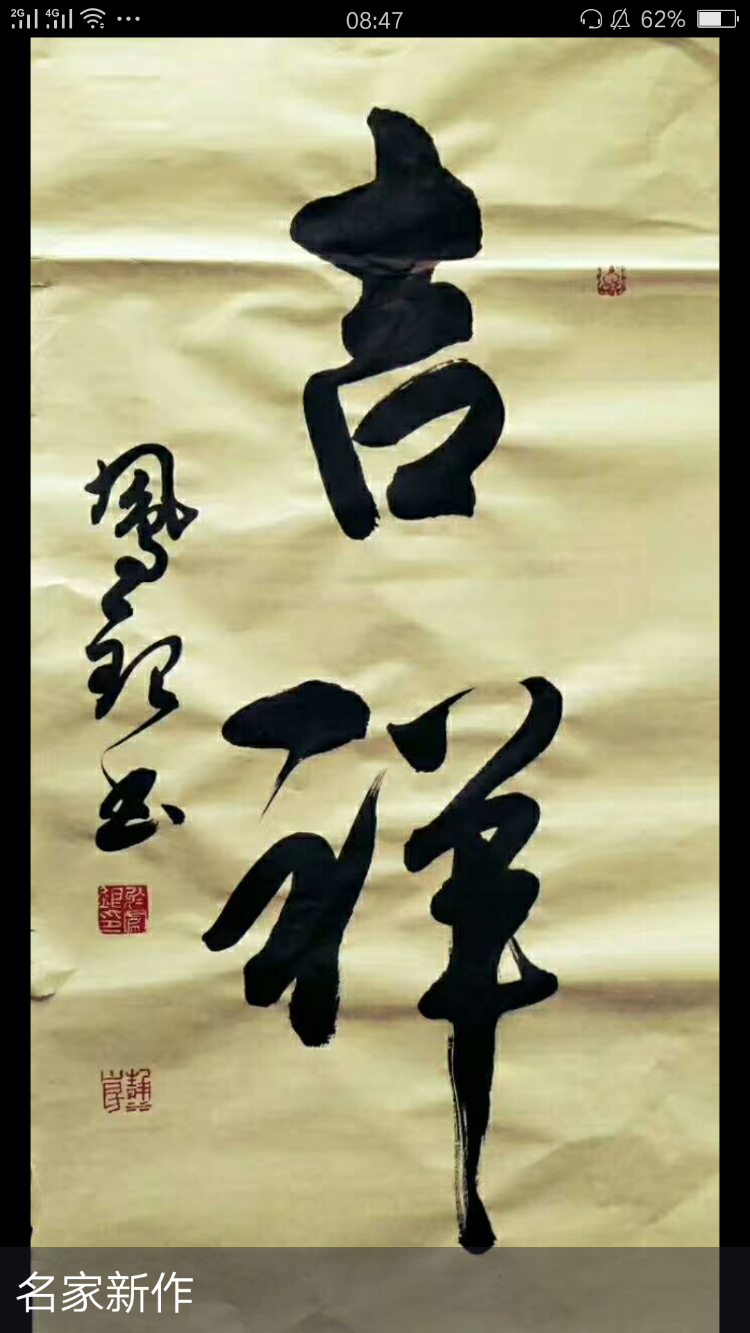 2G 4G 08:47 62%
吉祥
书
名家新作